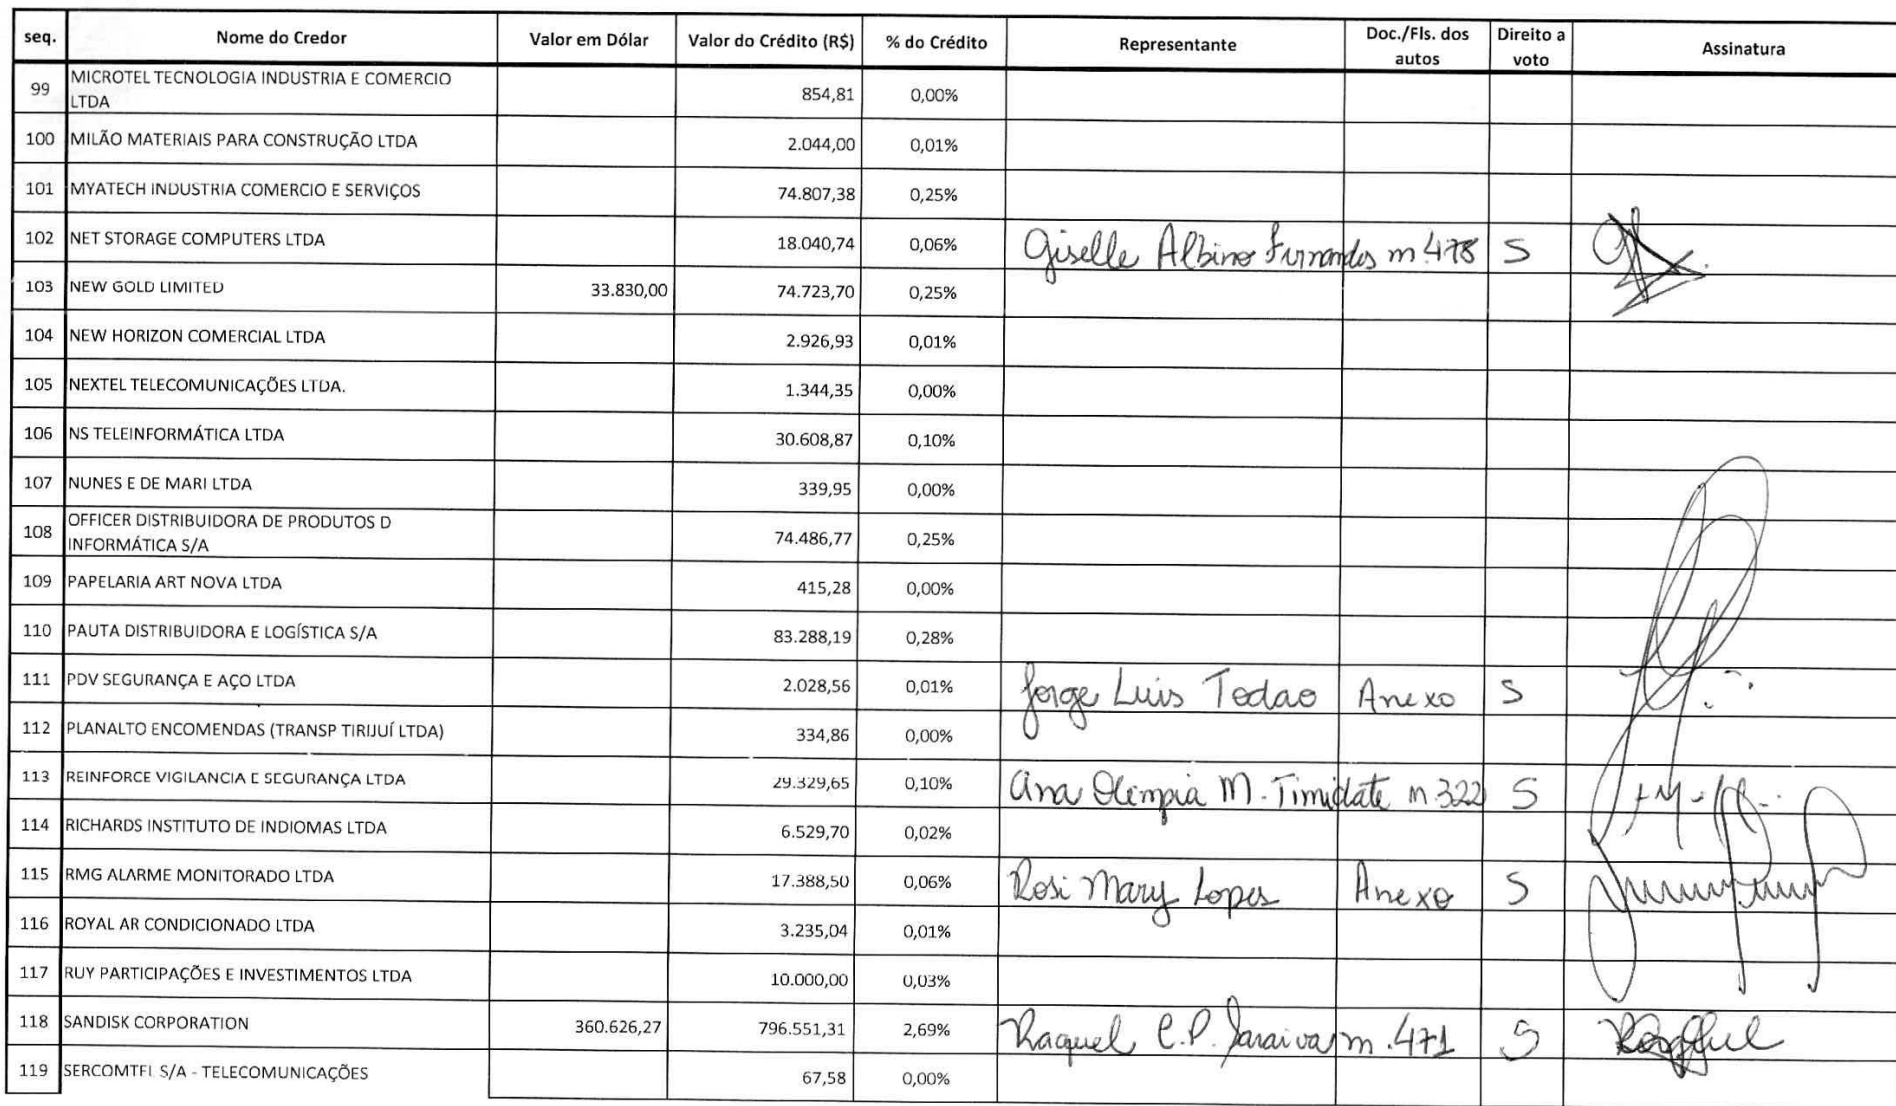 seq. Nome do Credor Valor em Dólar Valor do Crédito (R$) % do Crédito Representante Doc./Fls. dos autos Direito a voto Assinatura
99 MICROTEL TECNOLOGIA INDUSTRIA E COMERCIO LTDA 854,81 0,00%
100 MILÃO MATERIAIS PARA CONSTRUÇÃO LTDA 2.044,00 0,01%
101 MYATECH INDUSTRIA COMERCIO E SERVIÇOS 74.807,38 0,25%
102 NET STORAGE COMPUTERS LTDA 18.040,74 0,06% Giselle Albino Fernandes m 478 S
103 NEW GOLD LIMITED 33.830,00 74.723,70 0,25%
104 NEW HORIZON COMERCIAL LTDA 2.926,93 0,01%
105 NEXTEL TELECOMUNICAÇÕES LTDA. 1.344,35 0,00%
106 NS TELEINFORMÁTICA LTDA 30.608,87 0,10%
107 NUNES E DE MARI LTDA 339,95 0,00%
108 OFFICER DISTRIBUIDORA DE PRODUTOS D INFORMÁTICA S/A 74.486,77 0,25%
109 PAPELARIA ART NOVA LTDA 415,28 0,00%
110 PAUTA DISTRIBUIDORA E LOGÍSTICA S/A 83.288,19 0,28%
111 PDV SEGURANÇA E AÇO LTDA 2.028,56 0,01% Jorge Luis Todao Anexo S
112 PLANALTO ENCOMENDAS (TRANSP TIRIJUÍ LTDA) 334,86 0,00%
113 REINFORCE VIGILANCIA E SEGURANÇA LTDA 29.329,65 0,10% Ana Olimpia M. Timidate m 322 S
114 RICHARDS INSTITUTO DE INDIOMAS LTDA 6.529,70 0,02%
115 RMG ALARME MONITORADO LTDA 17.388,50 0,06% Rosi Mary Lopes Anexo S
116 ROYAL AR CONDICIONADO LTDA 3.235,04 0,01%
117 RUY PARTICIPAÇÕES E INVESTIMENTOS LTDA 10.000,00 0,03%
118 SANDISK CORPORATION 360.626,27 796.551,31 2,69% Raquel C.P. Saraiva m .471 S
119 SERCOMTEL S/A - TELECOMUNICAÇÕES 67,58 0,00%